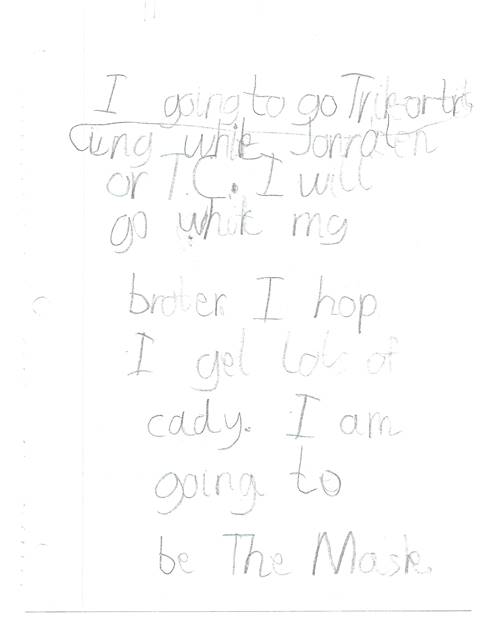 I going to go Trikortrt
ung whik Jonraten
or T.C. I will
go whik my
broter I hop
I get lots of
cady. I am
going to
be The Mask.